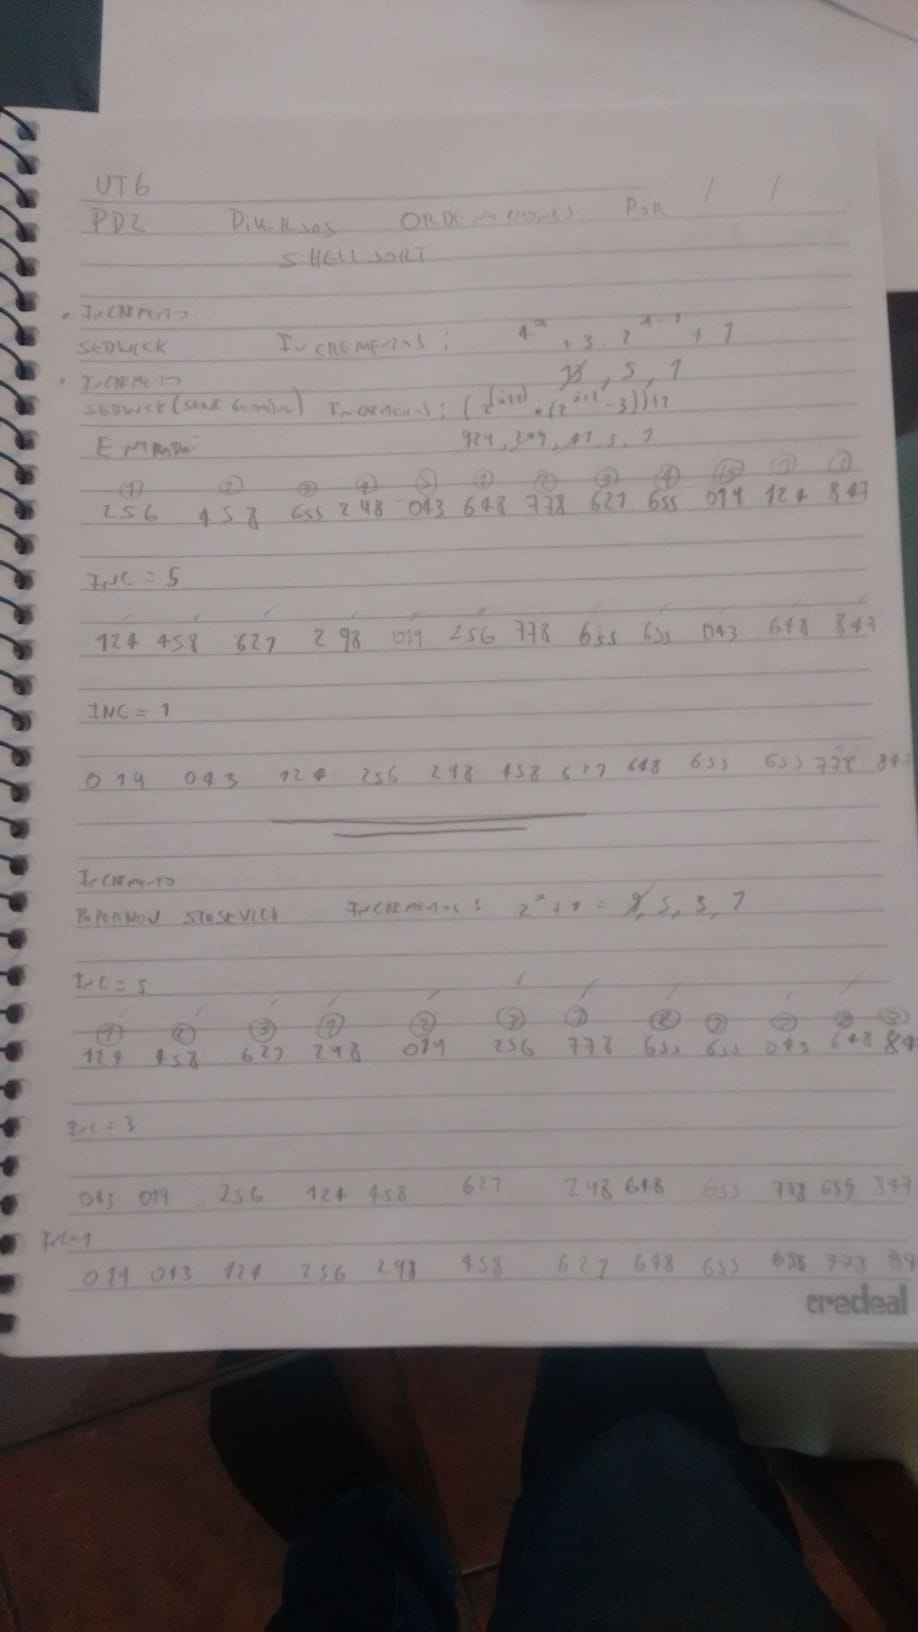 UT6 / /
PD2 Diversos ORDENACIONES POR
SHELLSORT
INCREMENTO
SEDWICK INCREMENTOS: 4^x + 3.2^x-1 + 1
, 5, 1
INCREMENTO
SEDWICK INCREMENTOS: (2^(i+2) . (2^i+2 - 3))+1
929, 209, 41, 5, 1
1 2 3 4 5 1 2 3 4 5 1 2
256 458 655 298 043 648 778 621 655 019 124 847
INC = 5
124 458 621 298 019 256 778 655 655 043 648 847
INC = 1
019 043 124 256 298 458 621 648 655 655 778 847
INCREMENTO
PAPERNOV STASEVICH INCREMENTOS: 2^x + 1 = 9, 5, 3, 1
INC = 5
1 2 3 1 2 3 1 2 3 1 2 3
124 458 621 298 019 256 778 655 655 043 648 84
INC = 3
043 019 256 124 458 621 298 648 655 778 655 847
INC=1
019 043 124 256 298 458 621 648 655 655 778 84
credeal